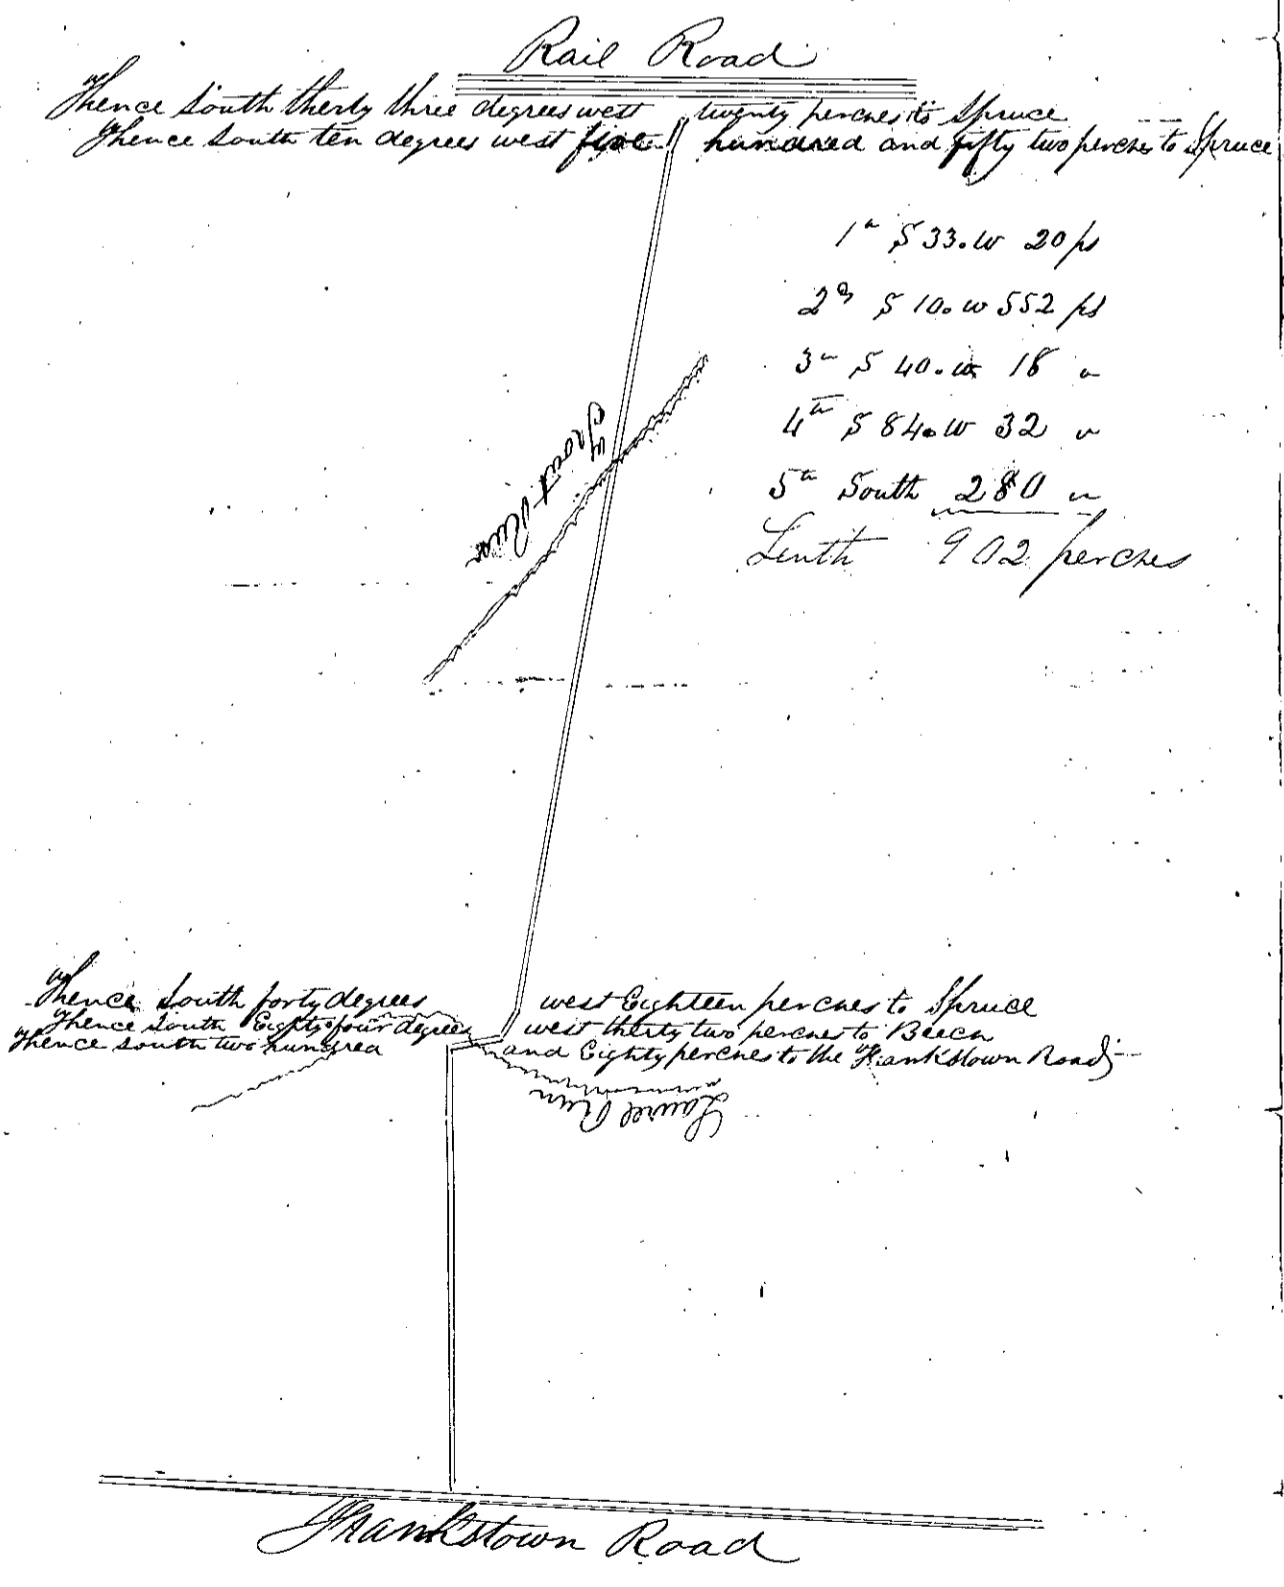 Rail Road
Thence South therty three degrees west twenty perches to Spruce
Thence South ten degrees west five hundred and fifty two perches to Spruce
1st S 33. w 20 ps
2d S 10. w 552 ps
3" S 40. w 18 "
4th S 84. w 32 "
5th South 280 "
Lenth 902 perches
Trout Run
Thence South forty degrees west Eighteen perches to Spruce
Thence South Eighty four degrees west therty two perches to Beech
Thence South two hundred and Eighty perches to the Frankstown Road
Laurel Run
Frankstown Road